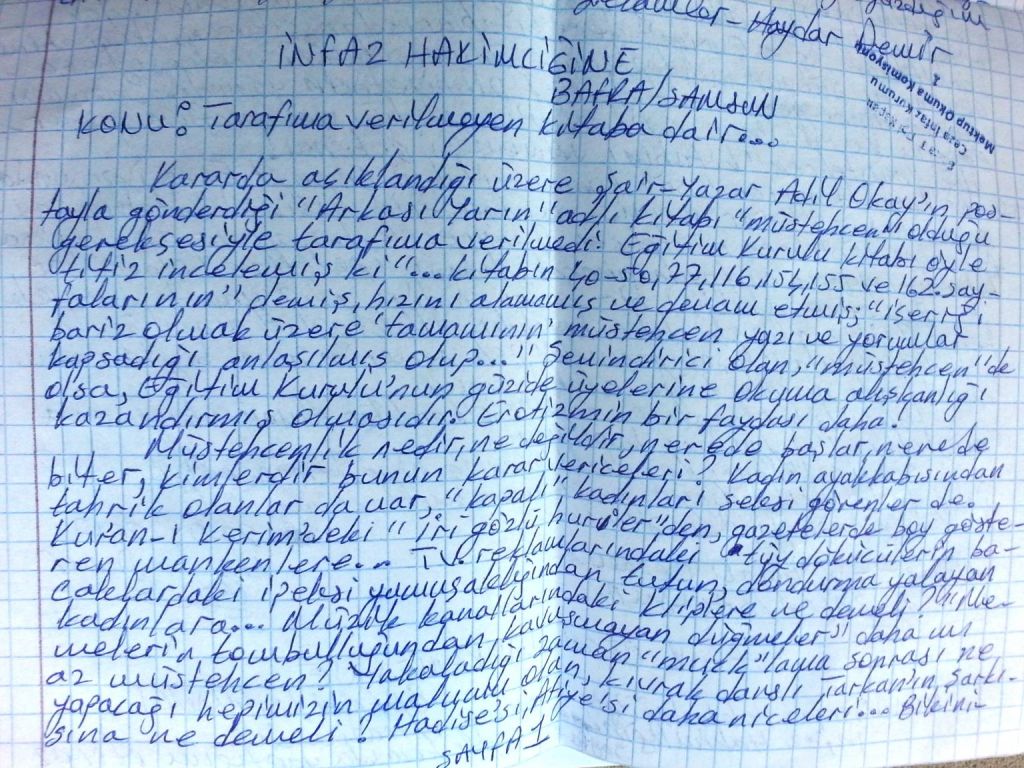 Selamlar - Haydar Demir
Mektup Okuma Komisyonu
Ceza İnfaz Kurumu
İNFAZ HAKİMCİĞİNE
BAFRA/SAMSUN
KONU: Tarafıma verilmeyen kitaba dair...
Kararda açıklandığı üzere Şair-Yazar Adil Okay'ın pos-
tayla gönderdiği "Arkası Yarın" adlı kitabı "müstehcen" olduğu
gerekçesiyle tarafıma verilmedi. Eğitim Kurulu kitabı öyle
titiz incelemiş ki "...kitabın 40-50, 77, 116, 154, 155 ve 162. say-
falarının" demiş, hızını alamamış ve devam etmiş; "içeriği
bariz olmak üzere 'tamamının' müstehcen yazı ve yorumlar
kapsadığı anlaşılmış olup..." Sevindirici olan, "müstehcen" de
olsa, Eğitim Kurulu'nun güzide üyelerine okuma alışkanlığı
kazandırmış olmasıdır. Erotizmin bir faydası daha.
Müstehcenlik nedir, ne değildir, nerede başlar, nerede
biter, kimlerdir bunun karar vericeleri? Kadın ayakkabısından
tahrik olanlar da var, "kapalı" kadınları seksi görenler de.
Kuran-ı Kerim'deki "iri gözlü huriler"den, gazetelerde boy göste-
ren mankenlere... TV. reklamlarındaki tüy dökücülerin ba-
caklardaki ipeksi yumuşaklığından tutun, dondurma yalayan
kadınlara... Müzik kanallarındaki kliplere ne demeli? "Me-
melerin tombulluğundan, kavuşmayan düğmeler" daha mı
az müstehcen? Yakaladığı zaman "muck"lama sonrası ne
yapacağı hepimizin malumu olan, kıvrak danslı Tarkan'ın şarkı-
sına ne demeli? Hadise'si, Atiye'si daha niceleri... Bikini-
SAYFA 1